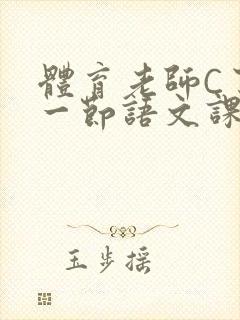 體育老師C
一節語文課
玉步搖